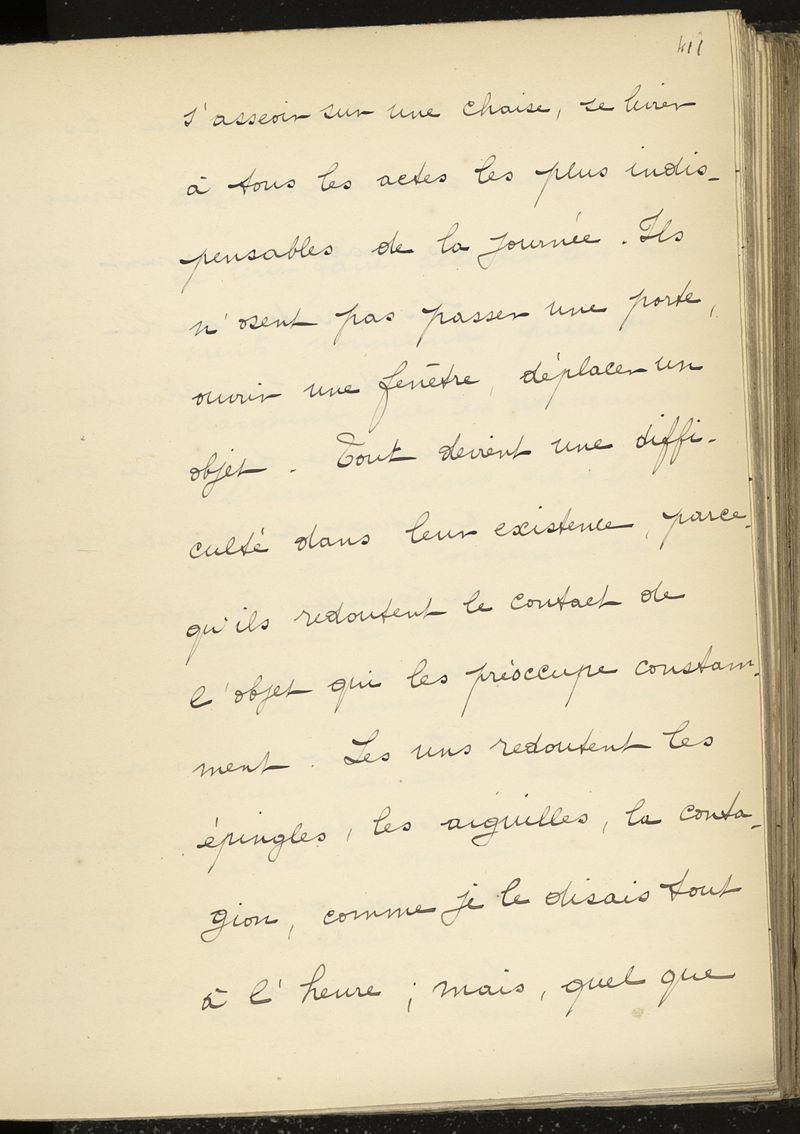 411
s'asseoir sur une chaise, se livrer
à tous les actes les plus indis-
pensables de la journée. Ils
n'osent pas passer une porte,
ouvrir une fenêtre, déplacer un
objet. Tout devient une diffi-
culté dans leur existence, parce-
qu'ils redoutent le contact de
l'objet qui les préoccupe constam-
ment. Les uns redoutent les
épingles, les aiguilles, la conta-
gion, comme je le disais tout
à l'heure; mais, quel que